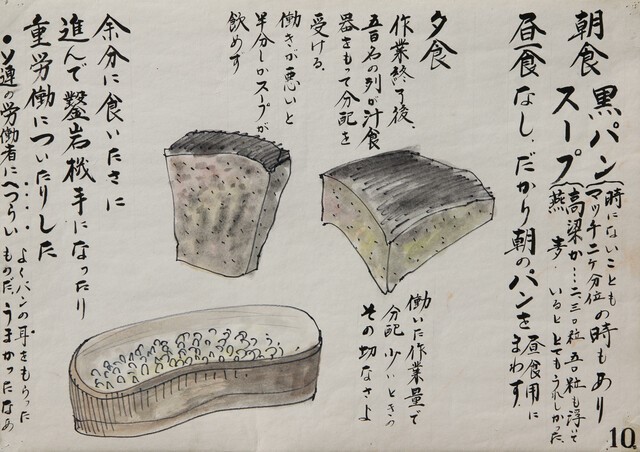 朝食 黒パン(時にないこともの時もあり
マッチ二ケ分位
スープ(高梁が…二、三〇粒 五〇粒も浮いて
燕麦 いるととてもうれしかった
昼食なし、だから朝のパンを
昼食用に
まわす
夕食
作業終了後、
五百名の列が汁食
器をもって分配を
受ける、
働きが悪いと
半分しかスープが
飲めず
働いた作業量で
分配 少いときの
その切なさよ
余分に食いたさに
進んで鑿岩機手になったり
重労働についたりした
・ソ連の労働者にへつらい
よくパンの耳をもらった
ものだ、うまかったなあ
10